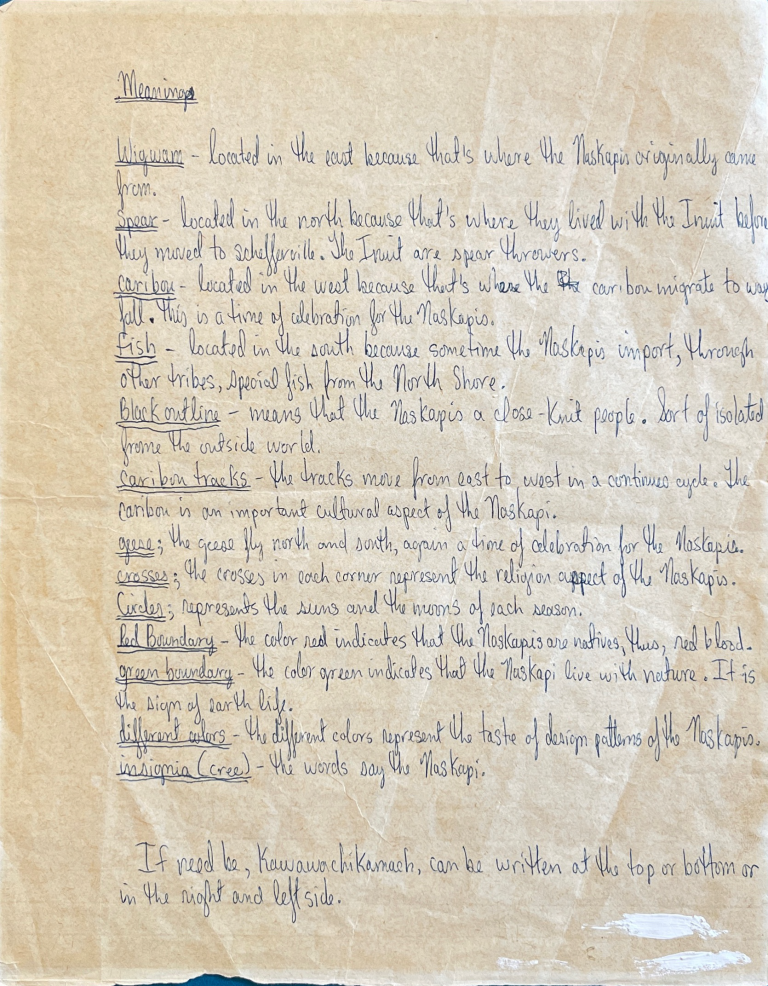 Meanings
Wigwam - located in the east because that's where the Naskapis originally came
from.
Spear - located in the north because that's where they lived with the Inuit before
they moved to schefferville. The Inuit are spear throwers.
caribou - located in the west because that's where the caribou migrate to way
fall. this is a time of celebration for the Naskapis.
Fish - located in the south because sometime the Naskapis import, through
other tribes, special fish from the North Shore.
Black outline - means that the Naskapis a close-knit people. Sort of isolated
frome the outside world.
caribou tracks - the tracks move from east to west in a continues cycle. The
caribou is an important cultural aspect of the Naskapi.
geese; the geese fly north and south, again a time of celebration for the Naskapis.
crosses; the crosses in each corner represent the religion aspect of the Naskapis.
Circles; represents the suns and the moons of each season.
Red Boundary - the color red indicates that the Naskapis are natives, thus, red blood.
green boundary - the color green indicates that the Naskapi live with nature. It is
the sign of earth life.
different colors - the different colors represent the taste of design patterns of the Naskapis.
insignia (cree) - the words say the Naskapi.
If need be, Kawawachikamach, can be written at the top or bottom or
in the right and left side.